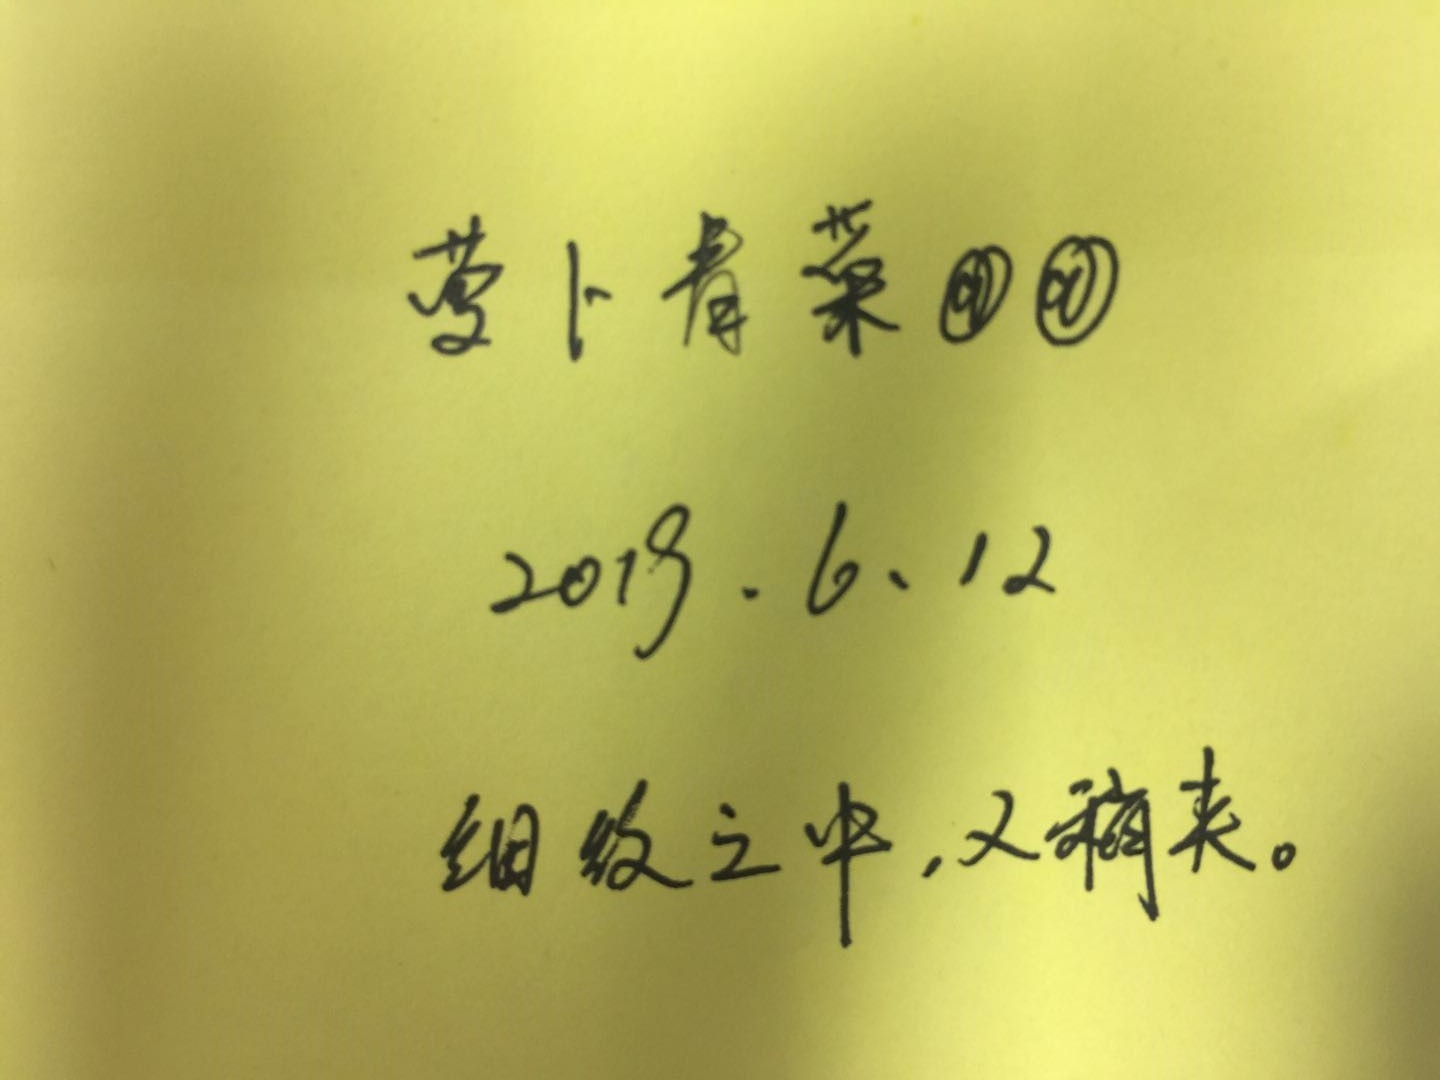 萝卜青菜
2019.6、12
细纹之中，又稍夹。